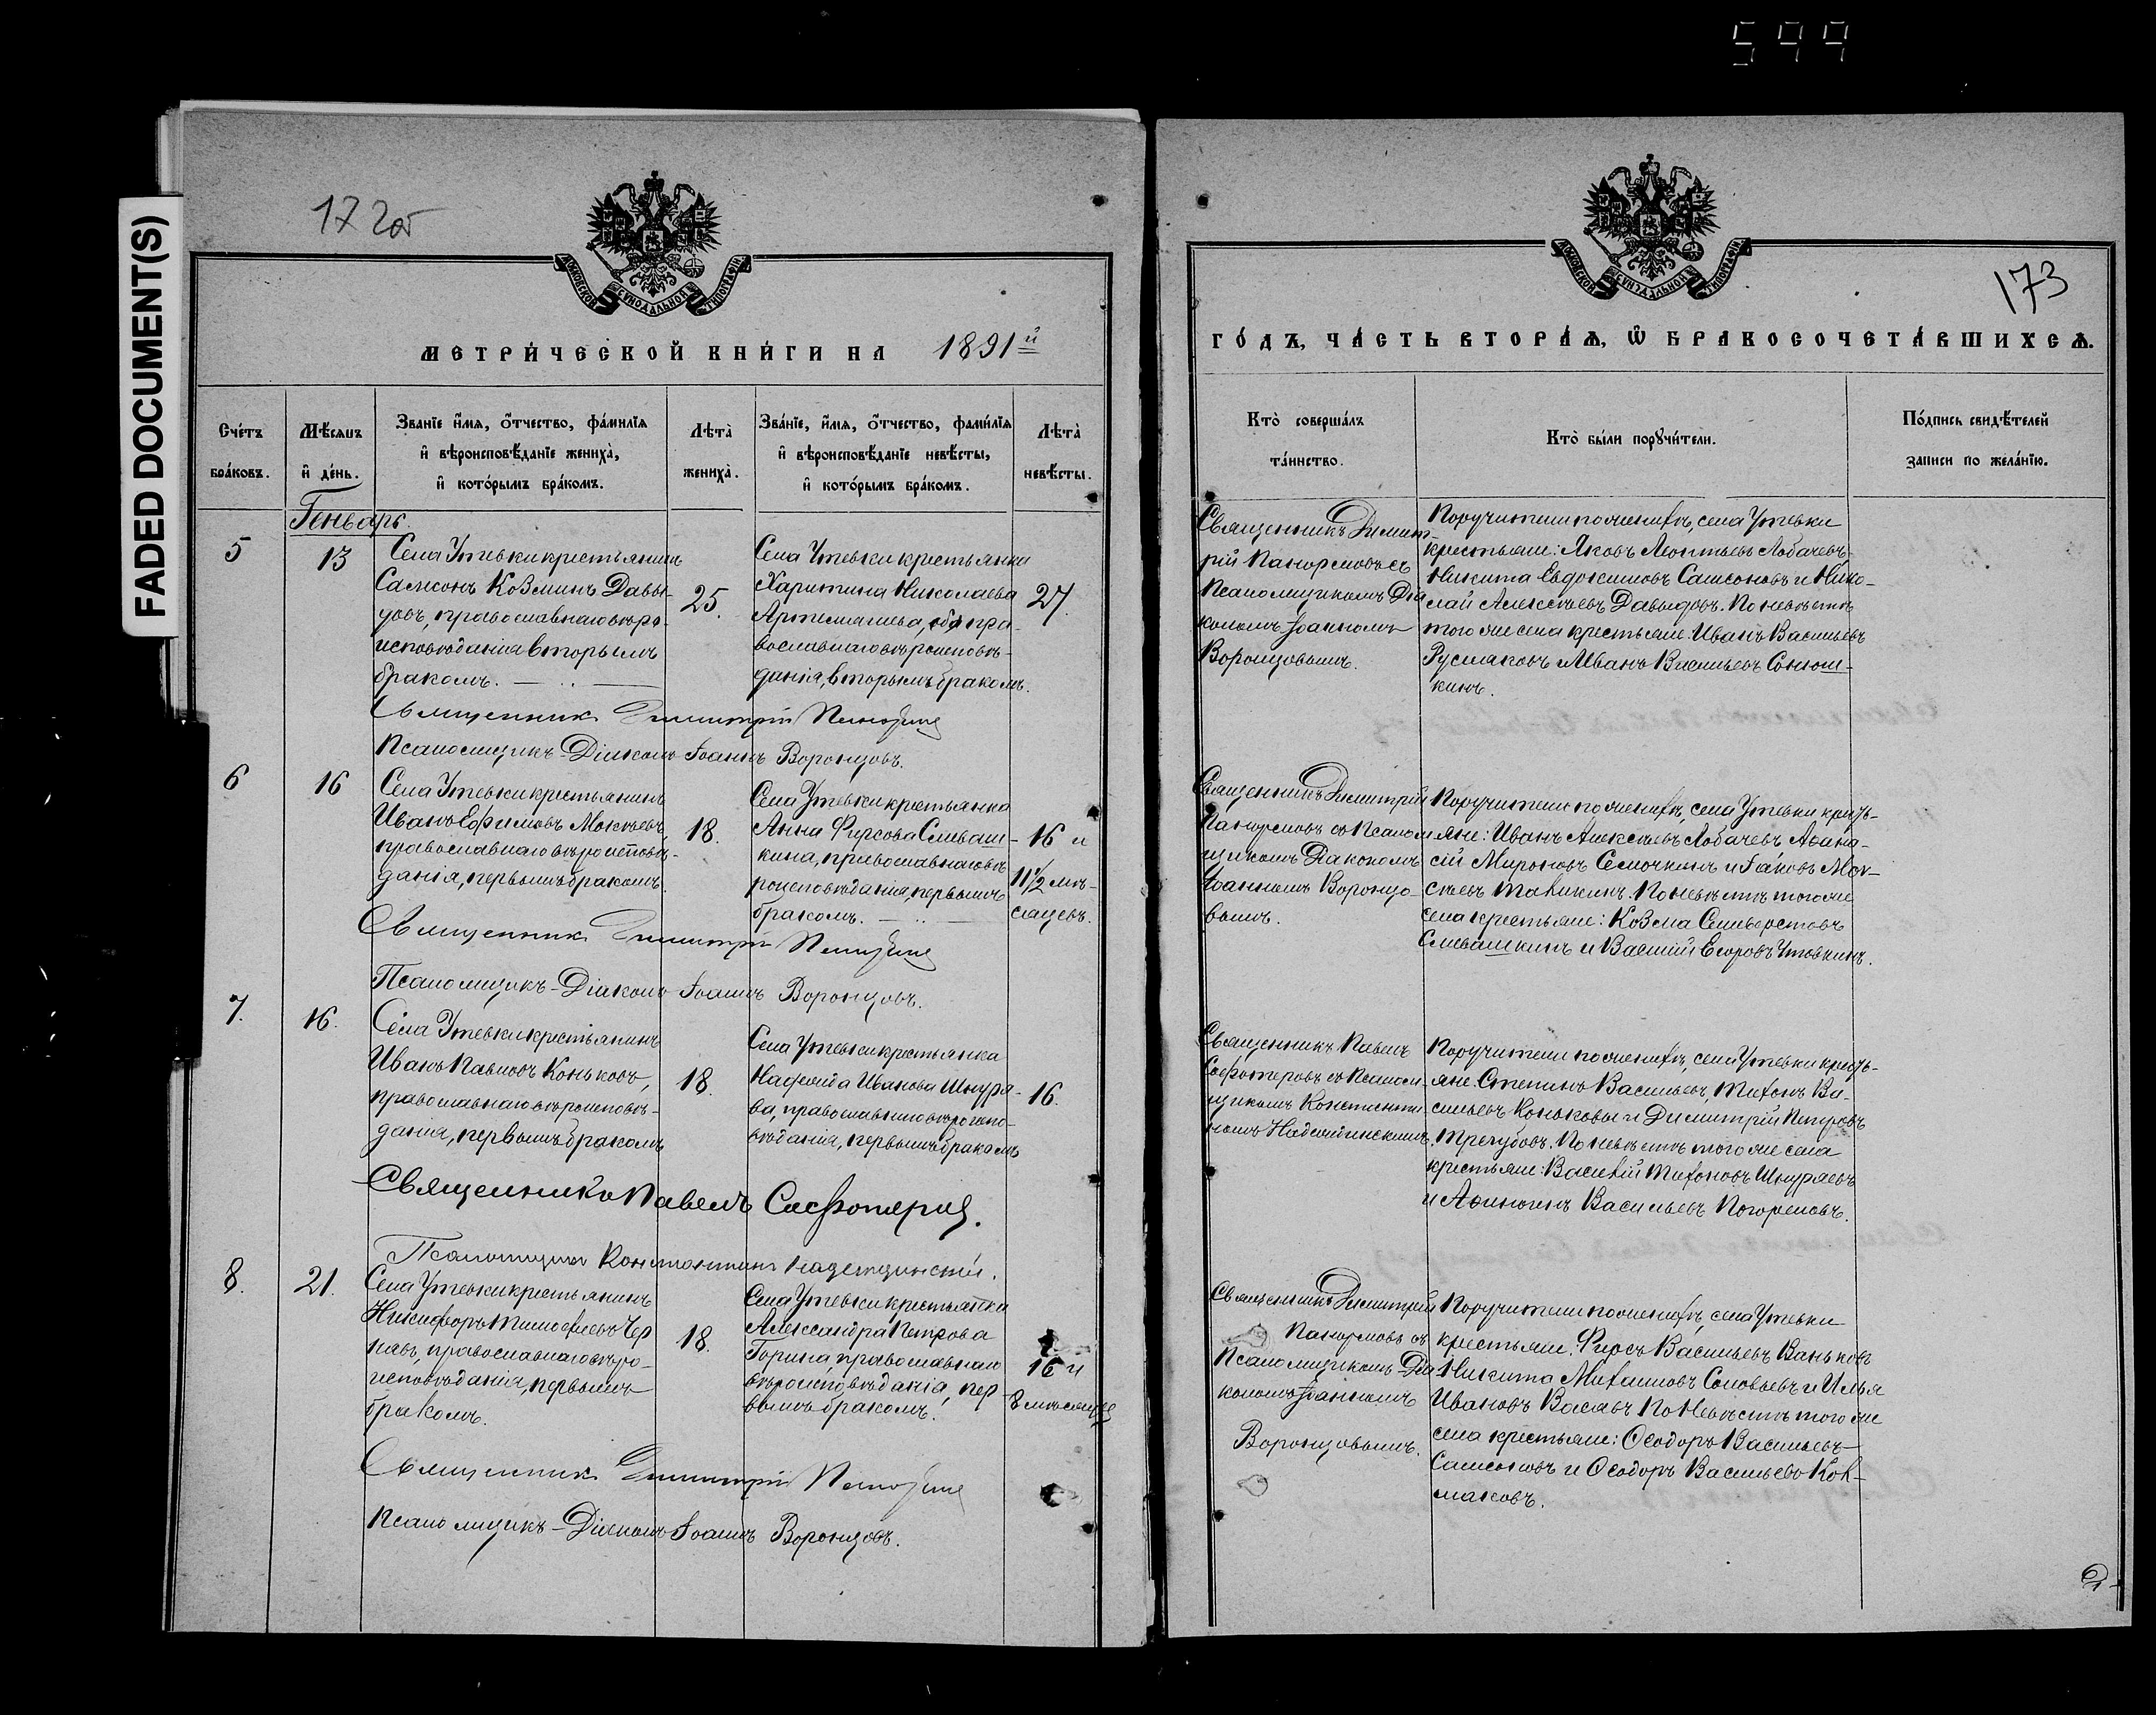 599
FADED DOCUMENT(S)
172об
МОСКОВСКОЙ СѴНОДАЛЬНОЙ ТИПОГРАФІИ
МЕТРИ́ЧЕСКОЙ КНИ́ГИ НА 1891й
Сче́тъ бра́ковъ.
Мѣ́сяцъ и҆ де́нь.
Зва́нїе и҆́мя, о҆́тчество, фамѝлїя
и҆ вѣроисповѣ́данїе женихà,
и҆ кото́рымъ бра́комъ.
Лѣтà женихà.
Зва́нїе, и҆́мя, о҆́тчество, фамѝлїя
и҆ вѣроисповѣ́данїе невѣ́сты,
и҆ кото́рымъ бра́комъ.
Лѣтà невѣ́сты.
Генварь.
5
13
Села Утевки крестьянинъ
Самсонъ Козминъ Давы-
довъ, православнаго вѣро-
исповѣданія вторымъ
бракомъ.
25.
Села Утевки крестьянка
Харитина Николаева
Артемашева, пра-
вославнаго вѣроисповѣ-
данія, вторымъ бракомъ.
27.
Священникъ Димитрій Панормовъ
Псаломщикъ-Діаконъ Іоаннъ Воронцовъ.
6
16
Села Утевки крестьянинъ
Иванъ Ефимовъ Мокѣевъ
православнаго вѣроисповѣ-
данія, первымъ бракомъ.
18.
Села Утевки крестьянка
Анна Фирсова Сливаш-
кина, православнаго вѣ-
роисповѣданія, первымъ
бракомъ.
16 и
11 1/2 мѣ-
сяцевъ.
Священникъ Димитрій Панормовъ
Псаломщикъ-Діаконъ Іоаннъ Воронцовъ.
7.
16.
Села Утевки крестьянинъ
Иванъ Павловъ Коньковъ,
православнаго вѣроисповѣ-
данія, первымъ бракомъ
18.
Села Утевки крестьянка
Надежда Иванова Шнуря-
ва, православнаго вѣроиспо-
вѣданія, первымъ бракомъ
16.
Священникъ Павелъ Сосфотеровъ.
Псаломщикъ Константинъ Надеждинскій.
8.
21.
Села Утевки крестьянинъ
Никифоръ Тимофеевъ Чер
новъ, православнаго вѣро-
исповѣданія, первымъ
бракомъ.
18.
Села Утевки крестьянка
Александра Петрова
Горина, православнаго
вѣроисповѣданія, пер-
вымъ бракомъ.
16 и
8 мѣсяце
Священникъ Димитрій Панормовъ
Псаломщикъ-Діаконъ Іоаннъ Воронцовъ.
173
МОСКОВСКОЙ СѴНОДАЛЬНОЙ ТИПОГРАФІИ
ГО́ДЪ, ЧА́СТЬ ВТОРА́Ѧ, Ѿ БРАКОСОЧЕТА́ВШИХСѦ.
Ктò соверша́лъ та́инство.
Ктò бы́ли порꙋчи́тели.
По́дпись свидѣ́телей за́писи по жела́нїю.
Священникъ Димит-
рій Панормовъ съ
Псаломщикомъ Діа
кономъ Іоанномъ
Воронцовымъ.
Поручители по женихѣ, села Утевки
крестьяне: Яковъ Леонтьевъ Лобачевъ
Никита Евдокимовъ Самсоновъ и Нико-
лай Алексѣевъ Давыдовъ. По невѣстѣ
того же села крестьяне Иванъ Васильевъ
Русяковъ Иванъ Васильевъ Сонюш-
кинъ.
Священникъ Димитрій
Панормовъ съ Псалом
щикомъ Діакономъ
Іоанномъ Воронцо-
вымъ.
Поручители по женихѣ, села Утевки кресть-
яне: Иванъ Алексѣевъ Лобачевъ Афана-
сій Мироновъ Семочкинъ и Іаковъ Мок-
сѣевъ. По невѣстѣ того же
села крестьяне: Козма Селиверстовъ
Сливашкинъ и Василій Егоровъ Утовкинъ.
Священникъ Павелъ
Сосфотеровъ съ Псалом-
щикомъ Константи-
номъ Надеждинскимъ.
Поручители по женихѣ, села Утевки кресть-
яне. Степанъ Васильевъ, Тихонъ Ва-
сильевъ Коньковы и Димитрій Петровъ
Трегубовъ. По невѣстѣ того же села
крестьяне: Василій Тихоновъ Шнуряевъ
и Афиногенъ Васильевъ Погореловъ.
Священникъ Димитрій
Панормовъ съ
Псаломщикомъ Діа
кономъ Іоанномъ
Воронцовымъ.
Поручители по женихѣ, села Утевки
крестьяне. Фирсъ Васильевъ Ваньковъ
Никита Михаиловъ Соловьевъ и Илья
Ивановъ Васяевъ По Невѣстѣ того же
села крестьяне: Ѳеодоръ Васильевъ
Самсоновъ и Ѳеодоръ Васильевъ Кол-
маковъ.